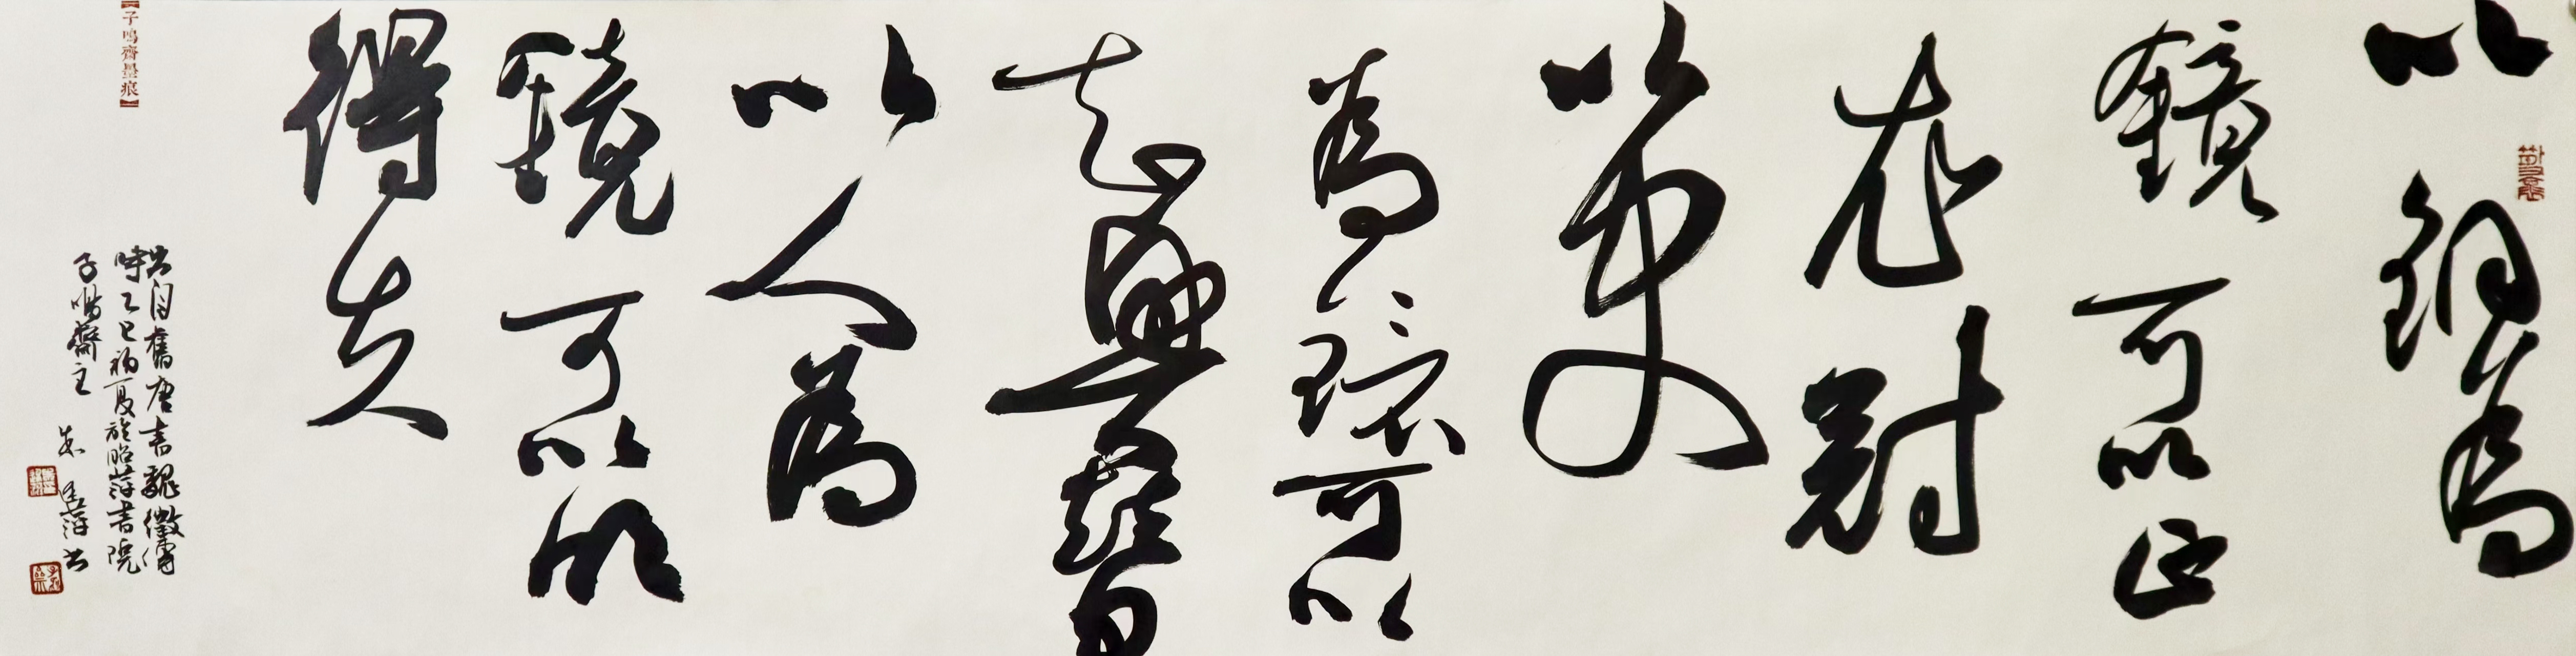 以銅為
鏡可以正
衣冠
以史
為鏡可以
知興替
以人為
鏡可以明
得失
出自舊唐書魏徵傳
時乙巳初夏於昭萍書院
子鳴齋主 萍書
【子鳴齋墨痕】